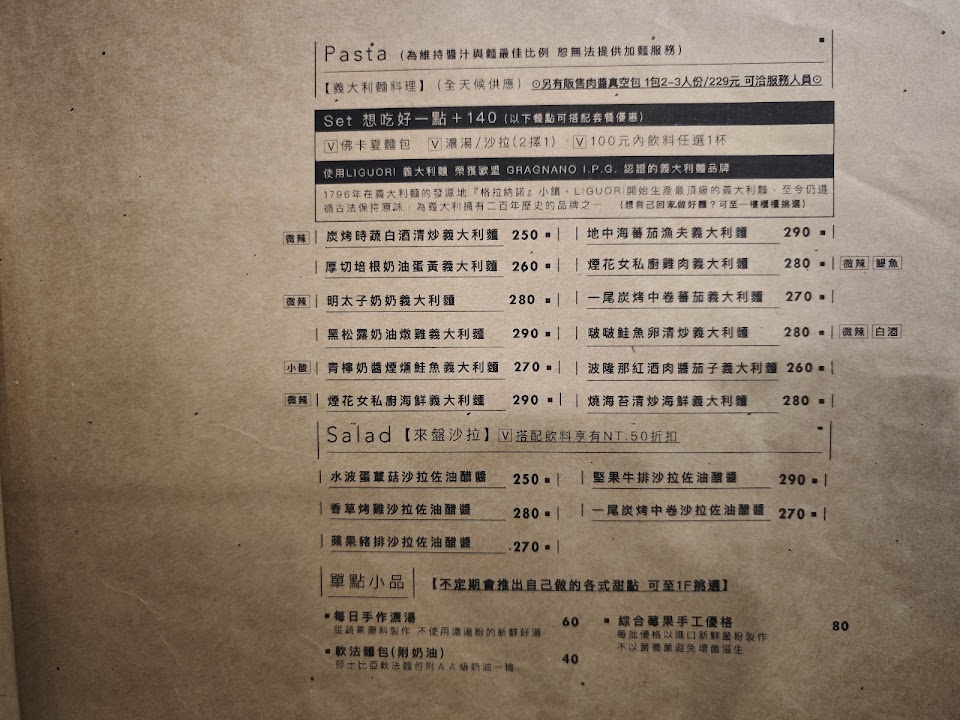 Pasta (為維持醬汁與麵最佳比例 恕無法提供加麵服務)
【義大利麵料理】(全天候供應) ⊙另有販售肉醬真空包 1包2-3人份/229元 可洽服務人員⊙
Set 想吃好一點+140 (以下餐點可搭配套餐優惠)
V 佛卡夏麵包 V 濃湯/沙拉(2擇1) V 100元內飲料任選1杯
使用LIGUORI 義大利麵 榮獲歐盟 GRAGNANO I.P.G. 認證的義大利麵品牌
1796年在義大利麵的發源地『格拉納諾』小鎮,LIGUORI開始生產最頂級的義大利麵,至今仍遵
循古法保持原味,為義大利擁有二百年歷史的品牌之一 (想自己回家做好麵?可至一樓櫃檯挑選)
微辣 炭烤時蔬白酒清炒義大利麵 250
厚切培根奶油蛋黃義大利麵 260
微辣 明太子奶奶義大利麵 280
黑松露奶油燉雞義大利麵 290
小酸 青檸奶醬煙燻鮭魚義大利麵 270
微辣 煙花女私廚海鮮義大利麵 290
地中海蕃茄漁夫義大利麵 290
煙花女私廚雞肉義大利麵 280 微辣 鯷魚
一尾炭烤中卷蕃茄義大利麵 270
啵啵鮭魚卵清炒義大利麵 280 微辣 白酒
波隆那紅酒肉醬茄子義大利麵 260
燒海苔清炒海鮮義大利麵 280
Salad【來盤沙拉】V 搭配飲料享有NT.50折扣
水波蛋蕈菇沙拉佐油醋醬 250
香草烤雞沙拉佐油醋醬 280
蘋果豬排沙拉佐油醋醬 270
堅果牛排沙拉佐油醋醬 290
一尾炭烤中卷沙拉佐油醋醬 270
單點小品 【不定期會推出自己做的各式甜點 可至1F挑選】
每日手作濃湯 60
從蔬果原料製作 不使用濃湯粉的新鮮好湯
軟法麵包(附奶油) 40
莎士比亞軟法麵包附AA級奶油一塊
綜合莓果手工優格 80
每批優格以進口新鮮菌粉製作
不以菌養菌避免壞菌滋生